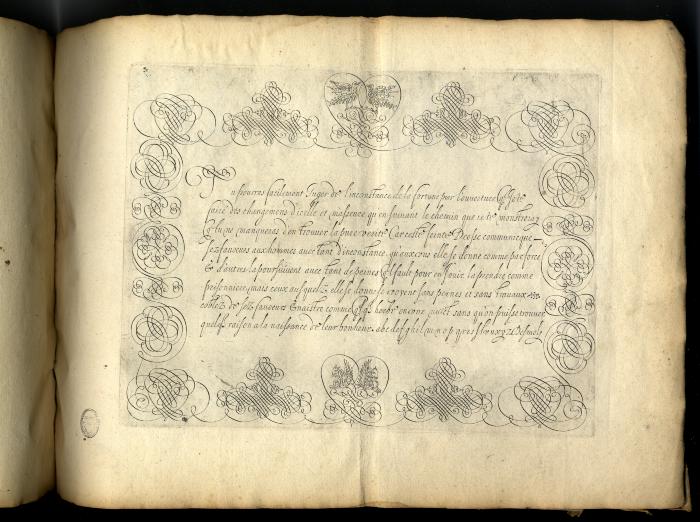 Tu pourras facilement Juger de l'inconstance de la fortune par l'ouverture
faite des changemens d'icelle et qu'en suivant le chemin que ie te monstreray
tu ne manqueras d'en trouver la pure verité Car ceste feinte Deesse communique
ses faveurs aux hommes avec tant d'inconstance, qu'aux uns elle se donne comme par force
& d'autres la poursuivent avec tant de peines fault pour en Jouir la prendre comme
prisonniere, mais ceux ausquelz elle se donne se croyent sans peines et sans travaux
comblez de ses faveurs & naistre comme sans qu'on puisse trouver
quelq raison a la naissance de leur bonheur. a b c d e f g h i l m n o p q r s t v x y z